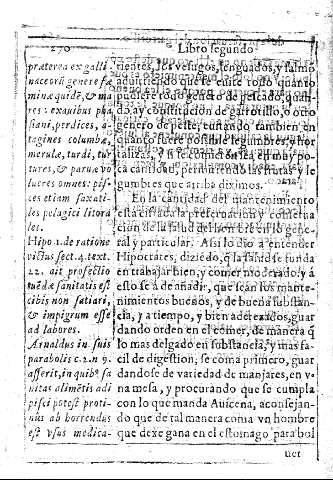 270
Libro segundo
præterea ex galli
naceorũ genere fæ
minæ quidẽ, & ma
res: ex auibus pha
siani, perdices, a-
tagines columbæ,
merulæ, turdi, tur
tures, & paruæ vo
lucres omnes: pis-
ces etiam saxati-
les pelagici litora
les.
Hipo 1. de ratione
victus sect. 4. text.
22. ait profectio
tuẽdæ sanitatis est
cibis non satiari,
& impigrum esse
ad labores.
Arnaldus in suis
parabolis c. 2. n 9.
asserit, in quibꝰ sa
nitas alimẽtis adi
pisci potest proti-
nus ab horrendus
est vsus medica-
rientes, los vesugos, lenguados, y salmõ
aduirtiendo que se euite todo quanto
pudiere todo genero de pescado, quan-
do ay constitucion de garrotillo, o otro
genero de peste, euitando tambien en
quanto fuere posible legumbres, y hor
talizas, y si se comieren sea en muy po-
ca cantidad, permitiendo las frutas y le
gumbres que arriba diximos.
En la cantidad del mantenimiento
esta cifrada la preseruacion y conserua
cion de la salud del hombre en lo gene-
ral y particular. Assi lo dio a entender
Hipocrates, diziẽdo, q̃ la salud se funda
en trabajar bien, y comer moderado, y á
esto se á de añadir, que sean los mante-
nimientos buenos, y de buena substan-
cia, y a tiempo, y bien aderezados, guar
dando orden en el comer, de manera q̃
lo mas delgado en substancia, y mas fa-
cil de digestion, se coma primero, guar
dandose de variedad de manjares, en v-
na mesa, y procurando que se cumpla
con lo que manda Auicena, aconsejan-
do que de tal manera coma vn hombre
que dexe gana en el estomago para bol
uer